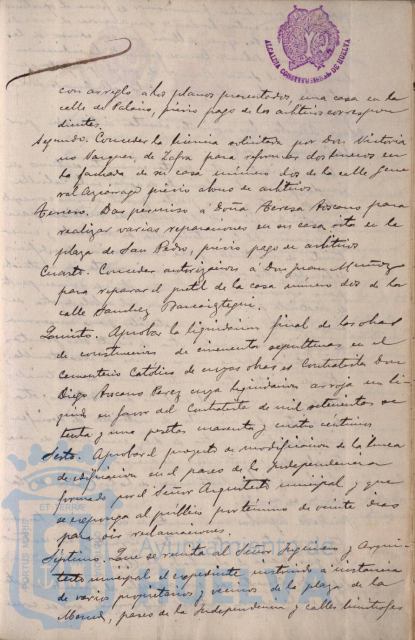 ALCALDIA CONSTITUCIONAL DE HUELVA
con arreglo a los planos presentados, una casa en la
calle de Palacio, previo pago de los arbitrios correspon
dientes.
Segundo. Conceder la licencia solicitada por Don Victoria
no Vazquez, de Zafra para reformar dos huecos en
la fachada de su casa número dos de la calle Gene
ral Azcárraga previo abono de arbitrios.
Tercero. Dar permiso a Doña Teresa Roscano para
realizar varias reparaciones en su casa sita en la
plaza de San Pedro, previo pago de arbitrios
Cuarto. Conceder autorización a Don Juan Muñoz
para reparar el pretil de la casa número dos de la
calle Sanchez Barcaiztegui.
Quinto. Aprobar la liquidación final de las obras
de construccion de cincuenta sepulturas en el
Cementerio Católico de cuyas obras es Contratista Don
Diego Perez cuya liquidacion arroja un li
quido en favor del Contratista de mil setecientas se
tenta y una pesetas noventa y cuatro centimos
Sexto. Aprobar el proyecto de modificacion de la linea
de edificacion en el paseo de la Independencia
formado por el Señor Arquitecto municipal y que
se exponga al público por término de veinte dias
para oir reclamaciones.
Séptimo. Que se remita al Señor Ingeniero y Arqui
tecto municipal el expediente instruido a instancia
de varios propietarios y vecinos de la plaza de la
Merced, paseo de la Independencia y calles limitrofes